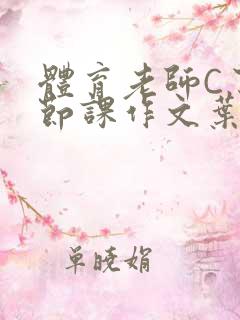 體育老師C
節課作文葉
單曉娟